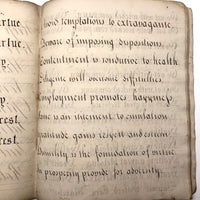 Avoid temptations to extravagance.
Beware of imposing dispositions.
Contentment is conducive to health
Diligence will overcome difficulties
Employment promotes happiness
Fame is an incitement to emulation
Gratitude gains respect and esteem
Humility is the foundation of virtue
In prosperity provide for adversity.